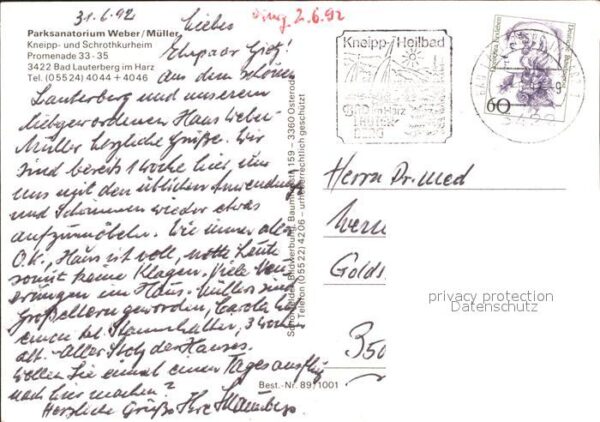 31.6.92
eing. 2.6.92
Parksanatorium Weber/Müller
Kneipp- und Schrothkurheim
Promenade 33 - 35
3422 Bad Lauterberg im Harz
Tel. (0 55 24) 40 44 + 40 46
Liebes
Ehepaar Götz!
Aus dem schönen
Lauterberg und unserem
liebgewordenen Haus Weber
Müller herzliche Grüße. Wir
sind bereits 1 Woche hier um
uns mit den üblichen Anwendung
und Schrammen wieder etwas
aufzumöbeln. Wie immer alles
O.K., Haus ist voll, nette Leute
somit keine Klagen. Viele
im Haus. Müllers sind
Großeltern geworden, Carola hat
einen kl. Stammhalter, 3 Wochen
alt. - Aller Stolz des Hauses.
Wollen Sie einmal einen Tagesausflug
nach hier machen?
Herzliche Grüße Ihre
Schöning Bildwerbung, Baumhofstr. 159 – 3360 Osterode
Telefon (0 55 22) 42 06 – urheberrechtlich geschützt
Best.-Nr. 89/1001
Kneipp-Heilbad
BAD im Harz
LAUTER-
BERG
Deutsche Bundespost
60
3422
Herrn Dr. med
Werne
Golds
privacy protection
Datenschutz
350